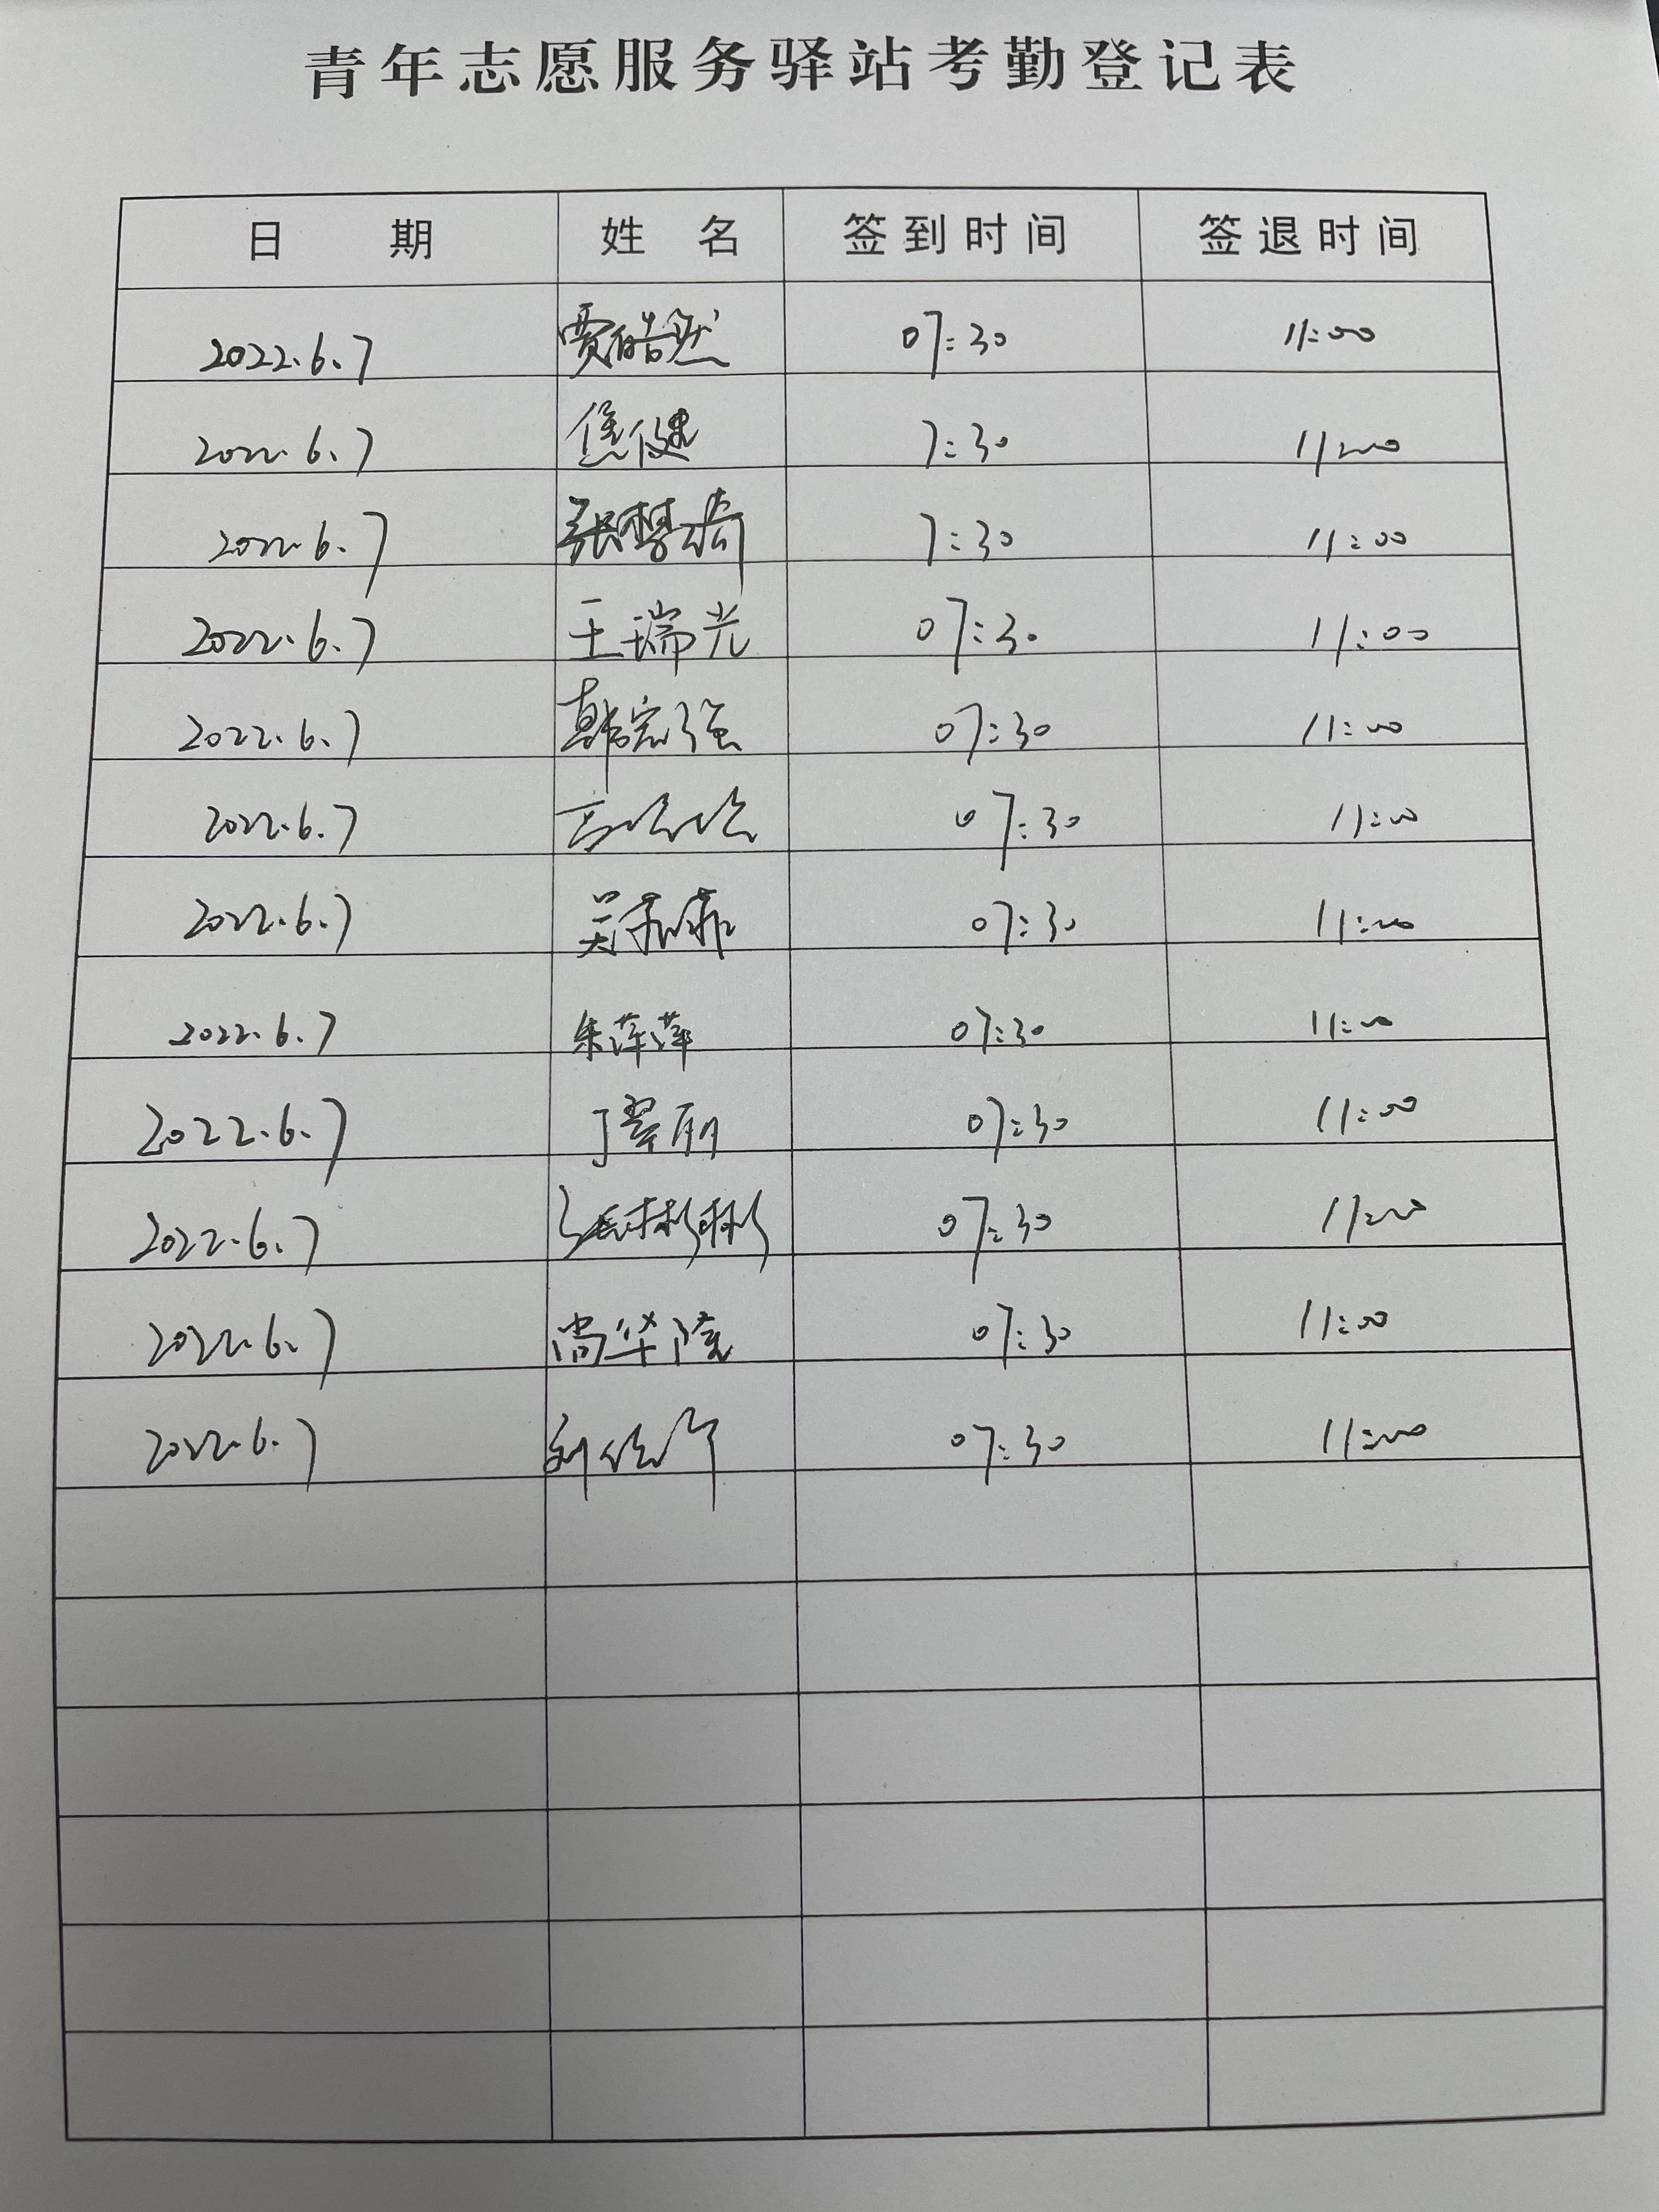 青年志愿服务驿站考勤登记表
日期 姓名 签到时间 签退时间
2022.6.7 贾皓然 07:30 11:00
2022.6.7 焦健 7:30 11:00
2022.6.7 张梦琦 7:30 11:00
2022.6.7 王瑞光 07:30 11:00
2022.6.7 韩宗强 07:30 11:00
2022.6.7 07:30 11:00
2022.6.7 吴乖乖 07:30 11:00
2022.6.7 朱萍萍 07:30 11:00
2022.6.7 丁翠丽 07:30 11:00
2022.6.7 张彬彬 07:30 11:00
2022.6.7 尚华隆 07:30 11:00
2022.6.7 07:30 11:00